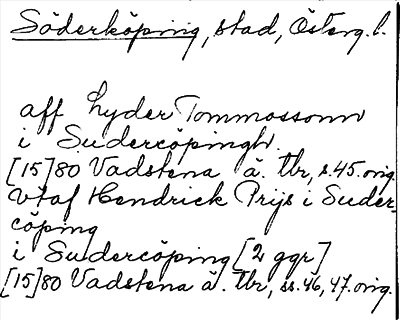 Söderköping, stad, Österg. l.
aff Lyder Tommossonn
i Sudercöpingh.
[15]80 Vadstena ä. tbr, s.45. orig.
Vtaf Hendrick Prijs i Suder-
cöping
i Sudercöping [2 ggr]
[15]80 Vadstena ä. tbr, ss. 46, 47. orig.